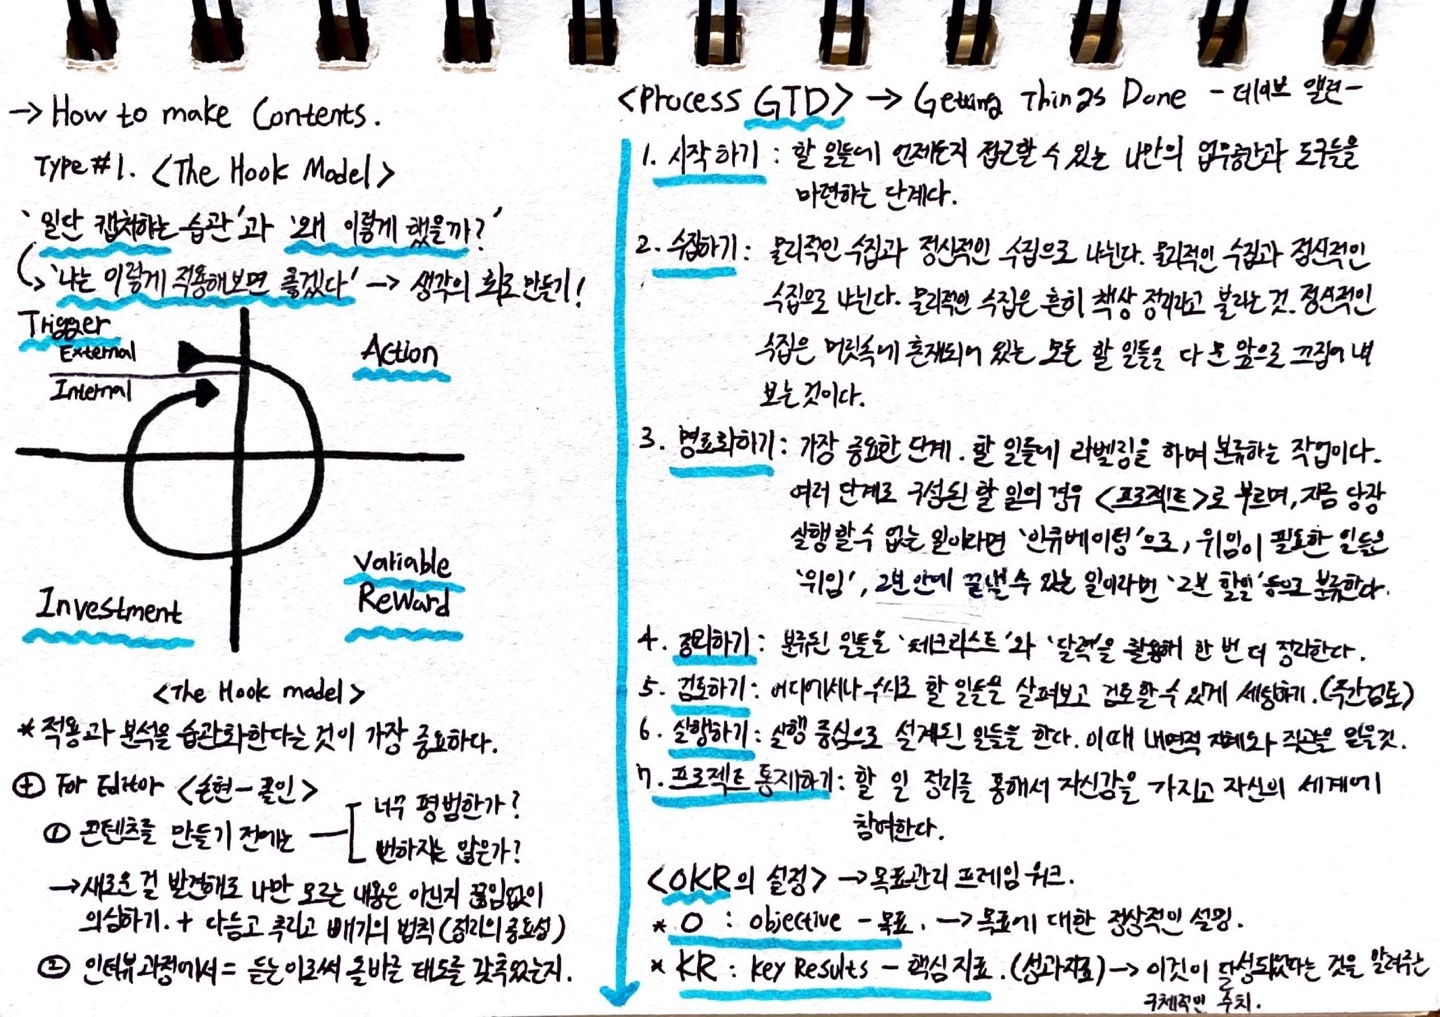 → How to make Contents.
Type #1. <The Hook Model>
'일단 캡처하는 습관'과 '왜 이렇게 했을까?'
'나는 이렇게 적용해보면 좋겠다' → 생각의 회로 만들기!
Trigger
External
Internal
Action
Variable
Reward
Investment
<The Hook model>
* 적용과 분석을 습관화한다는 것이 가장 중요하다.
+ For Editor <손현-폴인>
① 콘텐츠를 만들기 전에는
너무 평범한가?
뻔하지는 않은가?
→ 새로운 걸 발견해도 나만 모르는 내용은 아닌지 끊임없이
의심하기. + 다듬고 추리고 빼기의 법칙 (정리의 중요성)
② 인터뷰 과정에서 = 듣는이로써 올바른 태도를 갖추었는지.
<Process GTD> → Getting Things Done - 데이브 앨런 -
1. 시작하기 : 할 일들에 언제든지 접근할 수 있는 나만의 업무공간과 도구들을
마련하는 단계다.
2. 수집하기 : 물리적인 수집과 정신적인 수집으로 나뉜다. 물리적인 수집과 정신적인
수집으로 나뉜다. 물리적인 수집은 흔히 책상 정리라고 불리는 것. 정신적인
수집은 머릿속에 혼재되어 있는 모든 할 일들을 다 눈 앞으로 끄집어 내
보는 것이다.
3. 명료화하기 : 가장 중요한 단계. 할 일들에 라벨링을 하며 분류하는 작업이다.
여러 단계로 구성된 할 일의 경우 <프로젝트>로 부르며, 지금 당장
실행할 수 없는 일이라면 '인큐베이팅'으로, 위임이 필요한 일들은
'위임', 2분 안에 끝낼 수 있는 일이라면 '2분 할일' 등으로 분류한다.
4. 정리하기 : 분류된 일들을 '체크리스트'와 '달력'을 활용해 한 번 더 정리한다.
5. 검토하기 : 어디에서나 수시로 할 일들을 살펴보고 검토할 수 있게 세팅하기. (주간검토)
6. 실행하기 : 실행 중심으로 설계된 일들을 한다. 이때 내면적 지혜와 직관을 믿을것.
7. 프로젝트 통제하기 : 할 일 정리를 통해서 자신감을 가지고 자신의 세계에
참여한다.
<OKR의 설정> → 목표관리 프레임 워크.
* O : Objective - 목표. → 목표에 대한 정상적인 설명.
* KR : Key Results - 핵심 지표. (성과지표) → 이것이 달성되었다는 것을 알려주는
구체적인 수치.